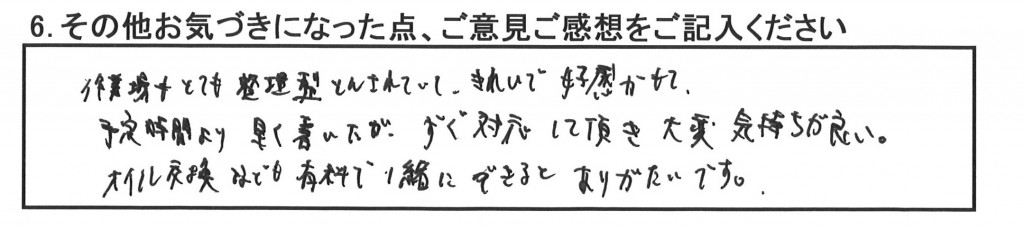 6.その他お気づきになった点、ご意見ご感想をご記入ください
作業場もとても整理整とんされていて、きれいで好感がもて、
予定時間より早く着いたが、すぐ対応して頂き大変気持ちが良い。
オイル交換なども有料で1緒にできるとありがたいです。